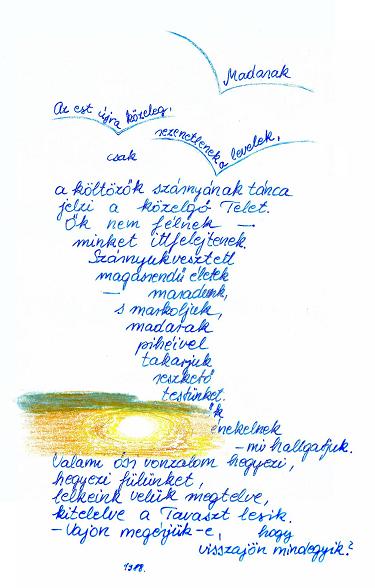 Madarak
Az est újra közeleg,
rezenetlenek a levelek,
csak
a költözők szárnyának tánca
jelzi a közelgő Telet.
Ők nem félnek —
minket ittfelejtenek.
Szárnyukvesztett
magasrendű életek
— maradunk,
s markoljuk,
madarak
piheivel
takarjuk
reszkető
testünket.
Ők
énekelnek
- mi hallgatjuk.
Valami ősi vonzalom hegyezi,
hegyezi fülünket,
lelkeink velük megtelve,
kitelelve a Tavaszt lesik.
- Vajon megérjük-e, hogy
visszajön mindegyik?
1988.